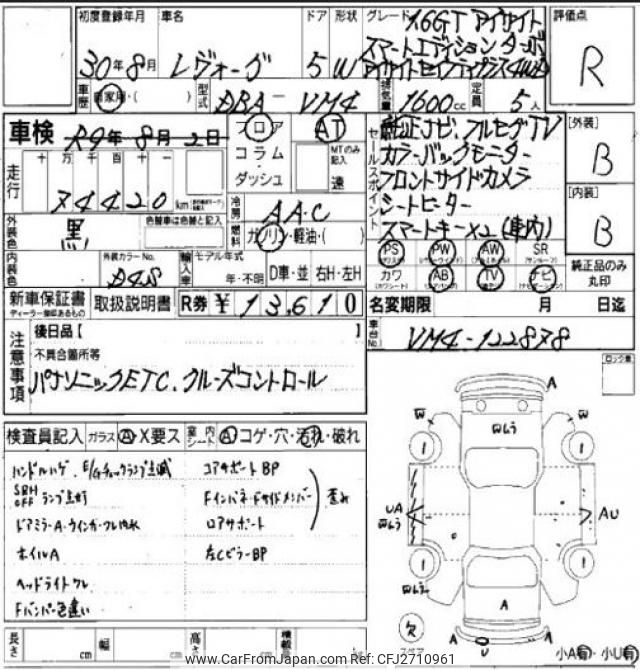 初度登録年月 車名 ドア 形状 グレード 評価点
30年8月 レヴォーグ 5 W 1.6GT アイサイト
スマートエディション ターボ
アイサイトセイフティプラス(4WD)
R
車歴 自家用・( ) 型式 DBA-VM4 排気量 1600cc 定員 5人
車検 R9年8月2日 フロア AT
コラム・ MTのみ記入
ダッシュ 速
セールスポイント 純正ナビ、フルセグTV
カラーバックモニター
フロントサイドカメラ
シートヒーター
スマートキーX2(車内)
[外装]
B
[内装]
B
走行 十 万 千 百 十 一
74420 km
冷房 AAC
外装色 黒 色替車は色替と記入
燃料 ガソリン・軽油・( )
PS PW AW SR
カワ AB TV ナビ
純正品のみ丸印
内装色 外装カラーNo. D4S 輸入車 モデル年式 年・不明 D車・並 右H・左H
新車保証書 取扱説明書 R券 ¥13,610
ディーラー捺印あるもの
名変期限 月 日迄
車台No. VM4-122878
注意事項 後日品【 】
不具合箇所等
パナソニックETC、クルーズコントロール
ロック車
検査員記入 ガラス A・X要ス 室内シート A コゲ・穴・汚れ・破れ
ハンドルハゲ、E/Gチェックランプ点滅 コアサポートBP
SRH OFF ランプ点灯 Fインパネ・Fサイドメンバー 歪み
ドアミラーA・ウインカーワレ ロアサポート
ホイルA 左CピラーBP
ヘッドライトワレ
Fバンパー色違い
A
W W
凹ムラ
1 1
UA
凹ムラ
AU
1 1
凹ムラ
A
欠
スペア
A U A
小A有・小U有
長さ cm 幅 cm 高さ cm 積載量
www.CarFromJapan.com Ref: CFJ2710961